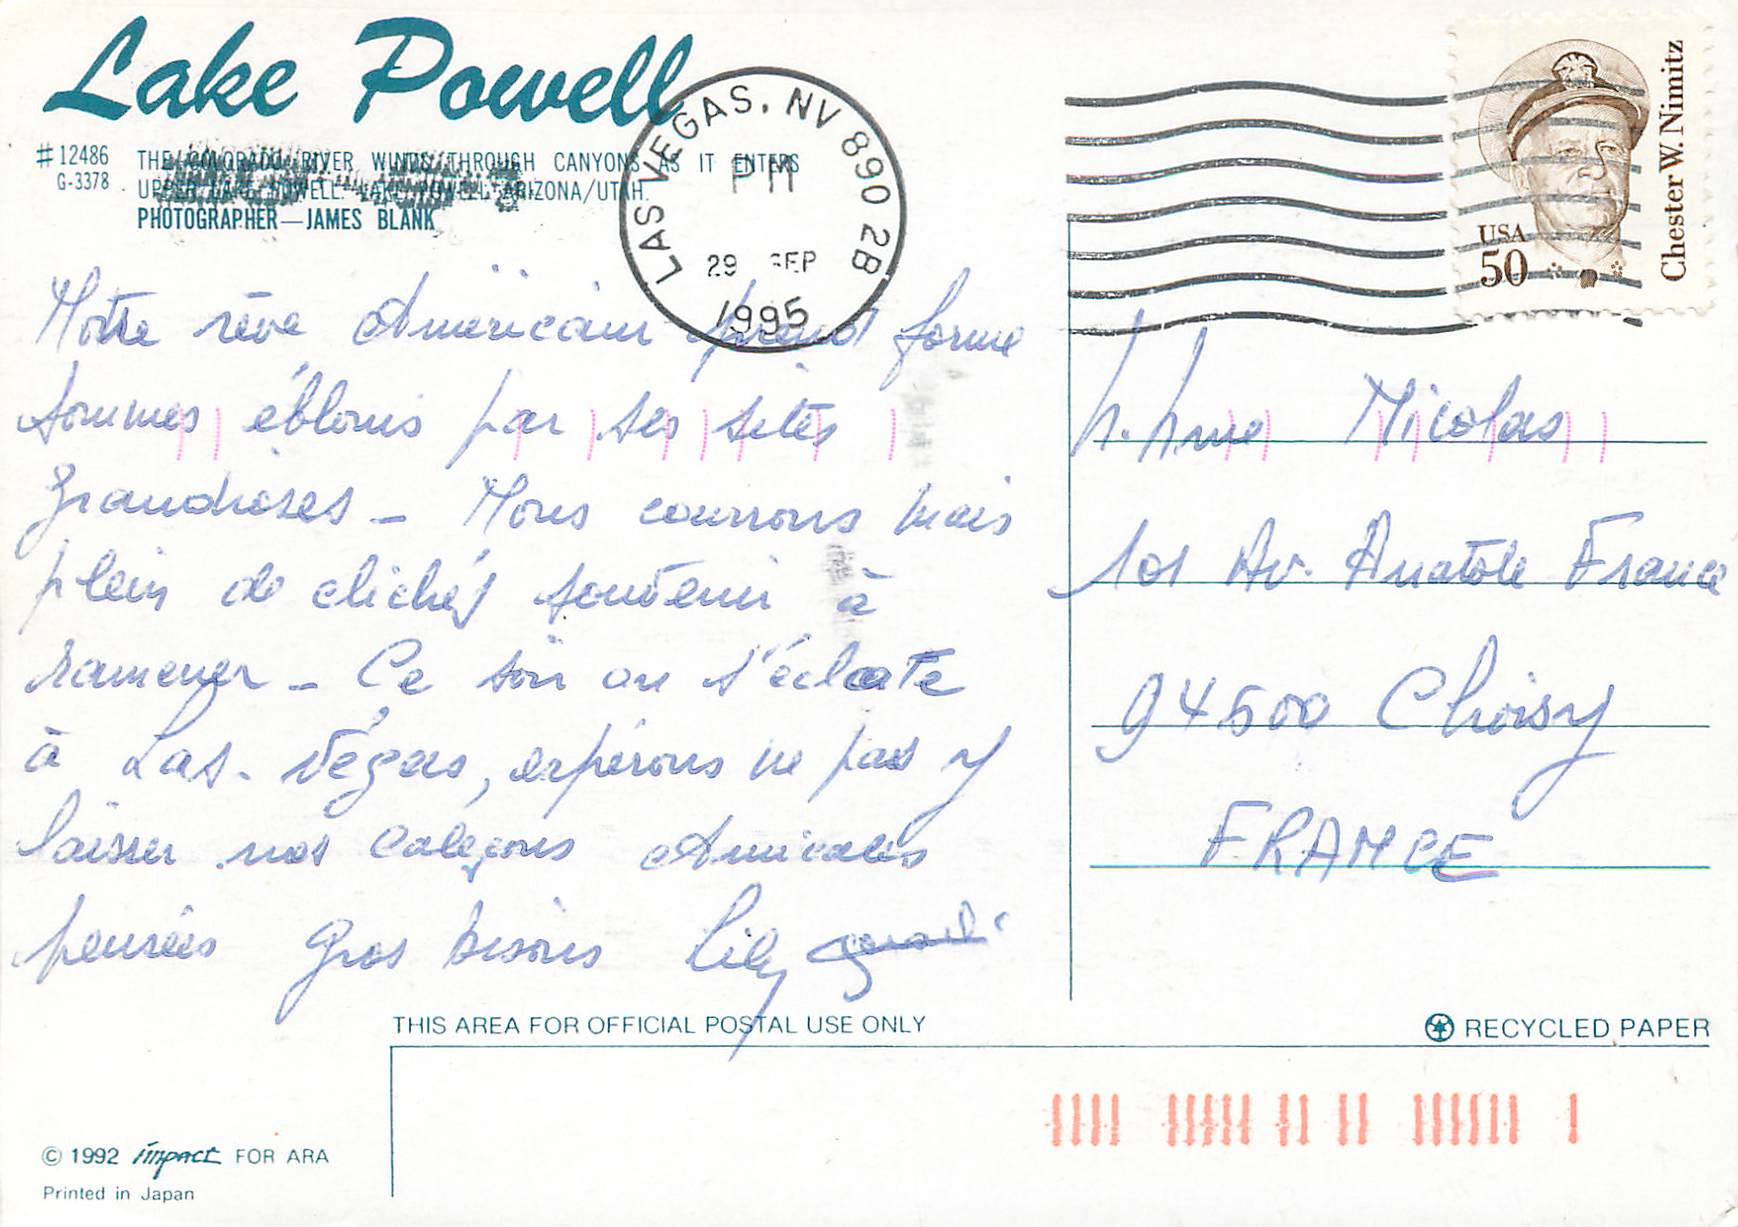 Lake Powell
# 12486
G-3378
THE COLORADO RIVER WINDS THROUGH CANYONS AS IT ENTERS
UPPER LAKE POWELL. LAKE POWELL, ARIZONA/UTAH.
PHOTOGRAPHER—JAMES BLANK
LAS VEGAS, NV 890 2B
PM
29 SEP
1995
USA
50
Chester W. Nimitz
Notre rêve Américain prend forme
sommes éblouis par ses sites
grandioses - Nous courrons mais
plein de clichés souvenir à
ramener - Ce soir on s'éclate
à Las-Végas, espérons ne pas y
laisser nos caleçons Amicales
pensées Gros bisous Lily
M. Mme Nicolas
101 Av. Anatole France
94600 Choisy
FRANCE
THIS AREA FOR OFFICIAL POSTAL USE ONLY
RECYCLED PAPER
© 1992 impact FOR ARA
Printed in Japan